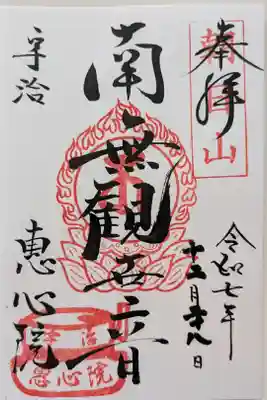 奉拝
朝日山
令和七年
十二月十八日
南無観世音
宇治
恵心院
宇治
恵心院